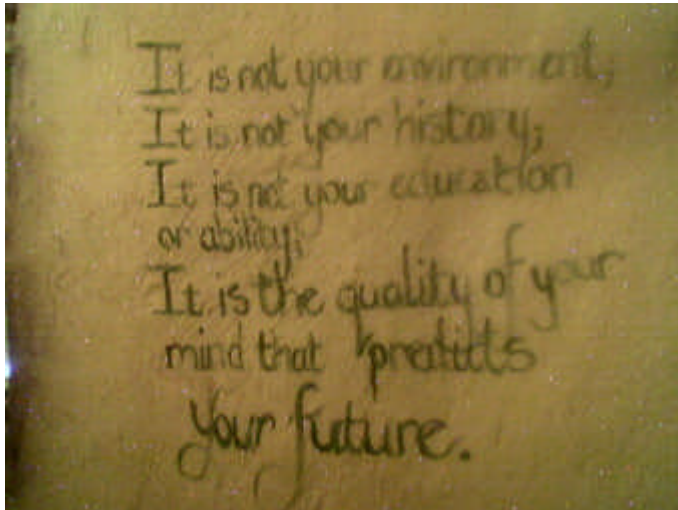 It is not your environment;
It is not your history;
It is not your education
or ability;
It is the quality of your
mind that predicts
your future.